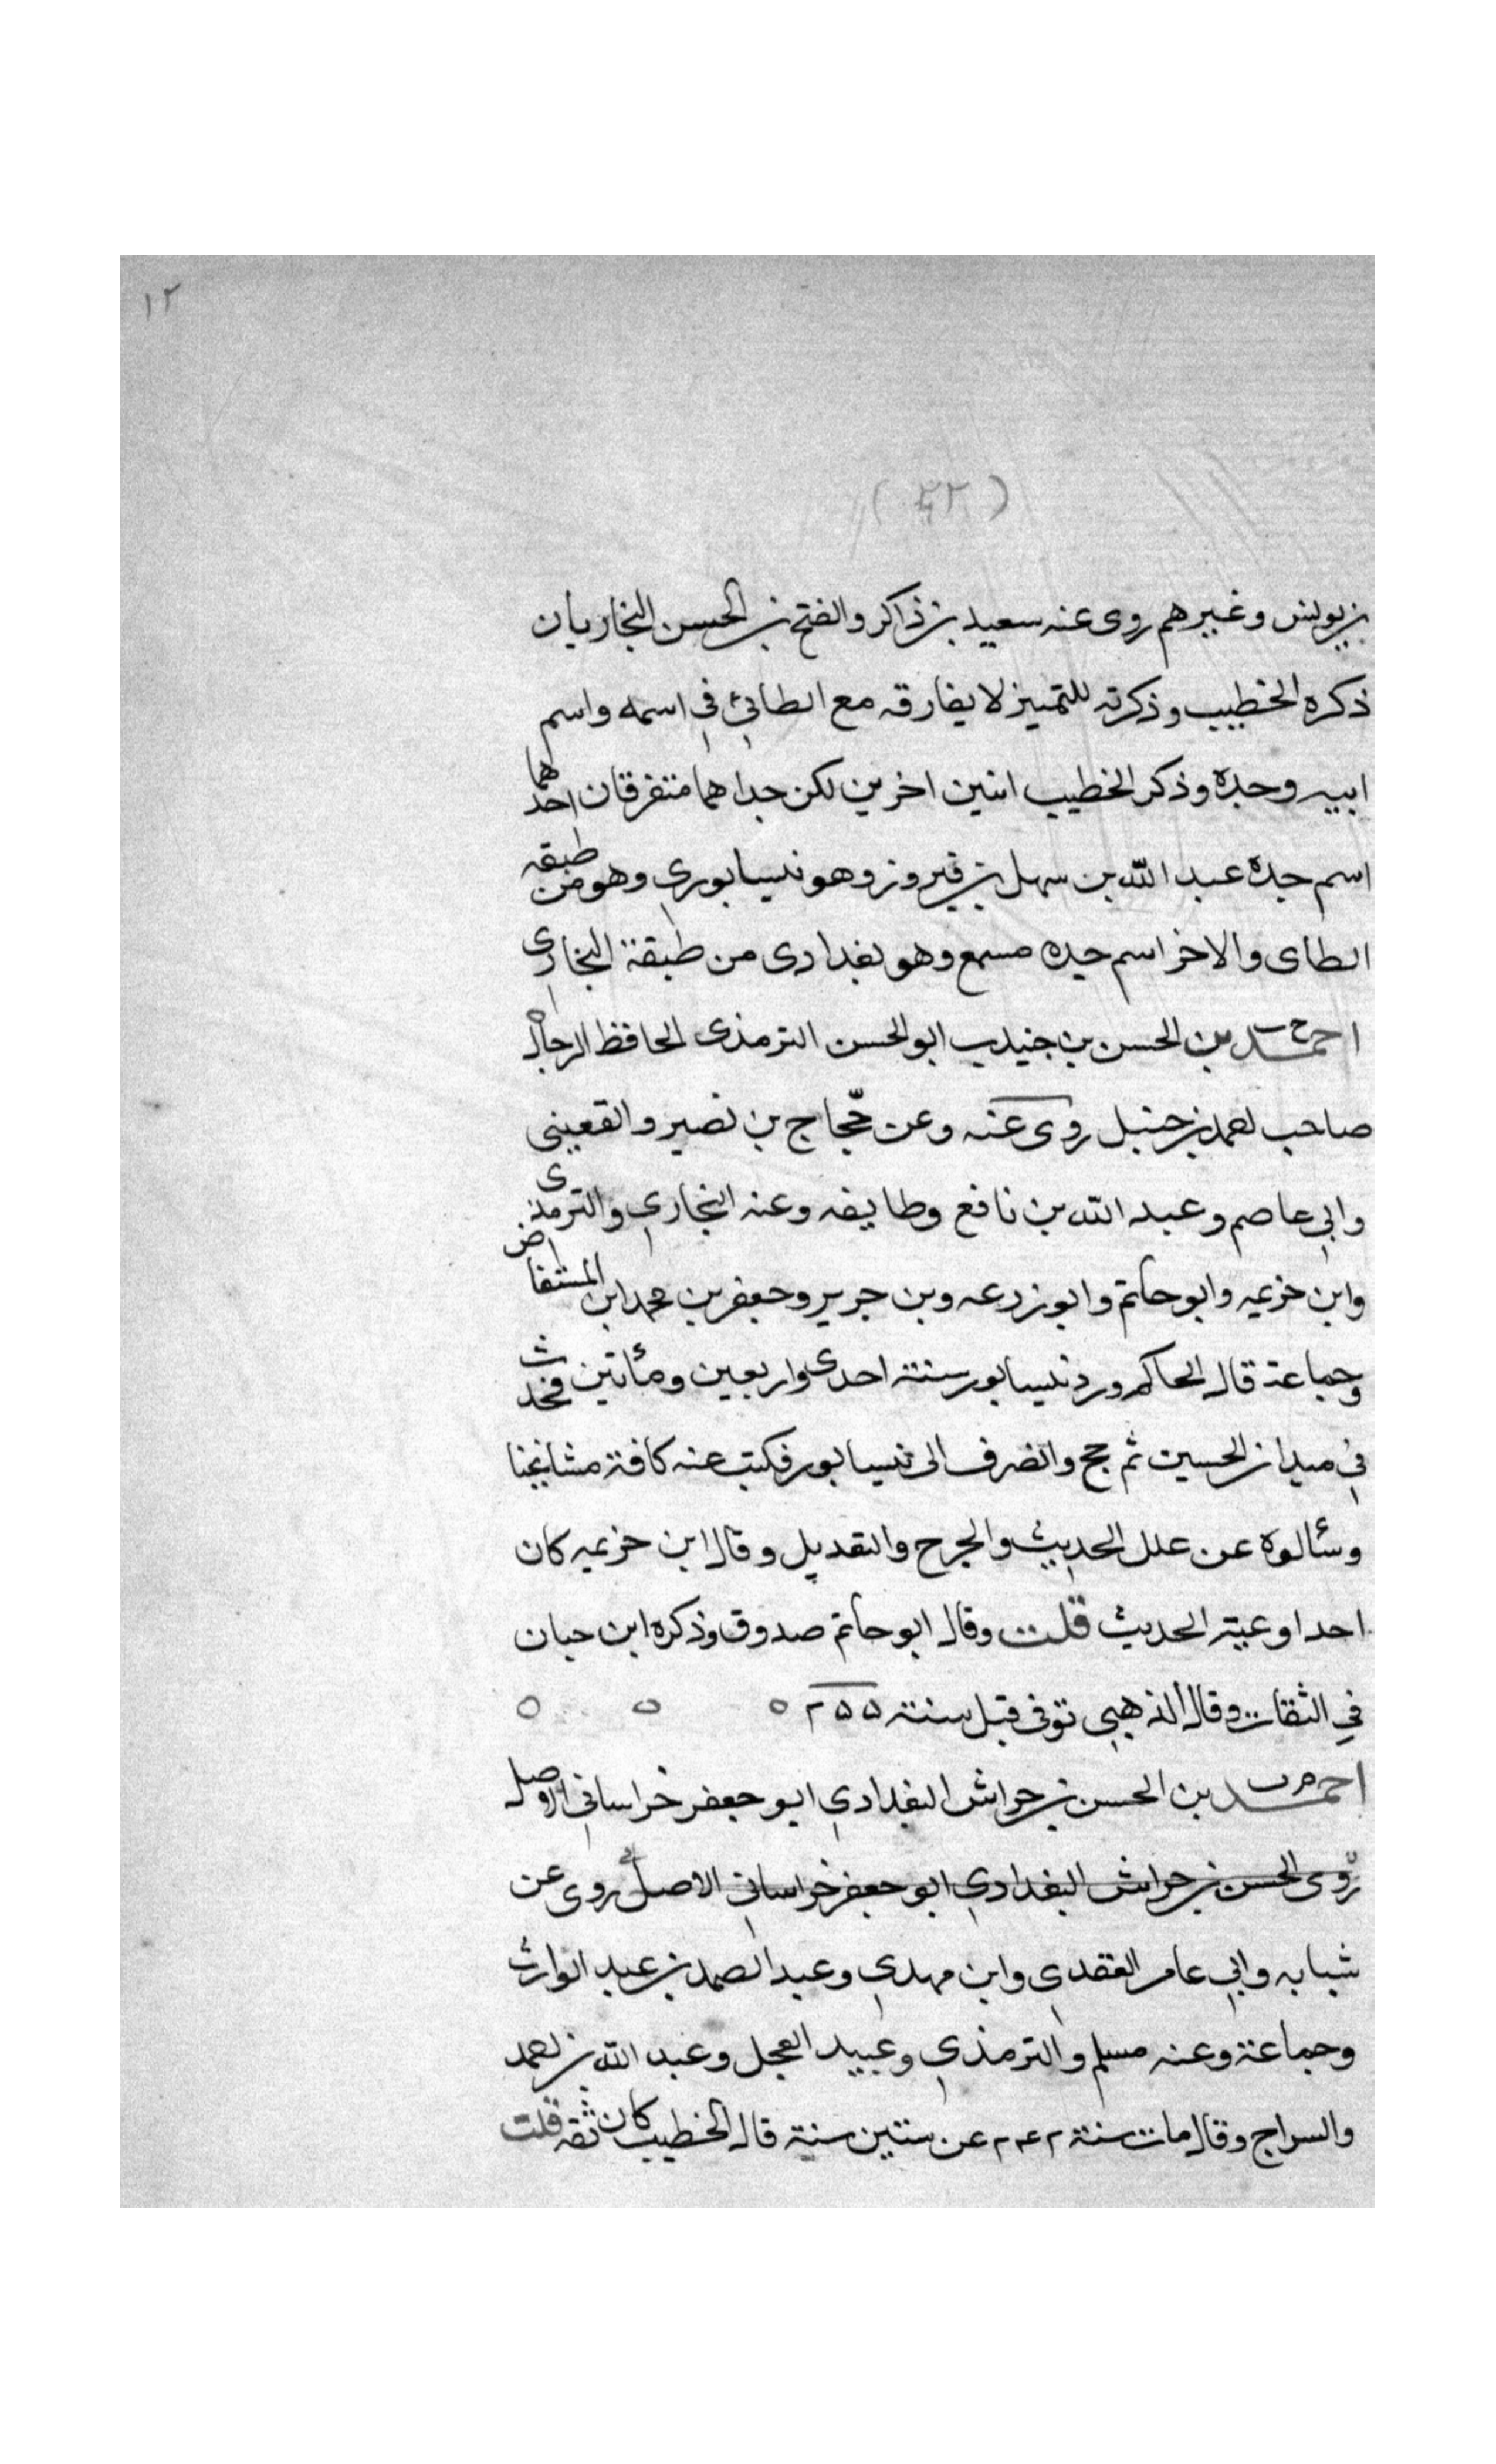 ١٢
(٢٢)
بن يونس وغيرهم روى عنه سعيد بن ذاكر والفتح بن الحسن البخاريان
ذكره الخطيب وذكرته للتمييز لا يفارقه مع الطائي في اسمه واسم
ابيه وجده وذكر الخطيب اثنين اخرين لكن جداهما متفرقان احدهما
اسم جده عبد الله بن سهل بن فيروز وهو نيسابوري وهو من طبقه
الطاى والاخر اسم جده مسمع وهو بغدادى من طبقة البخارى
احمد بن الحسن بن جنيدب ابو الحسن الترمذى الحافظ الرحال
صاحب احمد بن حنبل روى عنه وعن حجاج بن نصير والقعيني
وابي عاصم وعبد الله بن نافع وطايفه وعنه البخاري والترمذى
وابن خزيمه وابو حاتم وابو زرعه وبن جرير وجعفر بن محمد ابن المستفاض
وجماعة قال الحاكم ورد نيسابور سنة احدى واربعين ومأتين فحدث
في ميدان الحسين ثم حج وانصرف الى نيسابور فكتب عنه كافة مشائخنا
وسئالوه عن علل الحديث والجرح والتعديل وقال ابن خزيمه كان
احد اوعية الحديث قلت وقال ابو حاتم صدوق وذكره ابن حبان
في الثقات وقال الذهبي توفى قبل سنة ٢٥٥ ه ه ه
احمد بن الحسن بن خراش البغدادي ابو جعفر خراساني الاصل
روى الحسن بن خراش البغدادي ابو جعفر خراساني الاصل روى عن
شبابه وابي عامر العقدى وابن مهدي وعبد الصمد بن عبد الوارث
وجماعة وعنه مسلم والترمذي وعبيد العجل وعبد الله بن احمد
والسراج وقال مات سنة ٢٤٢ عن ستين سنة قال الخطيب كان ثقه قلت